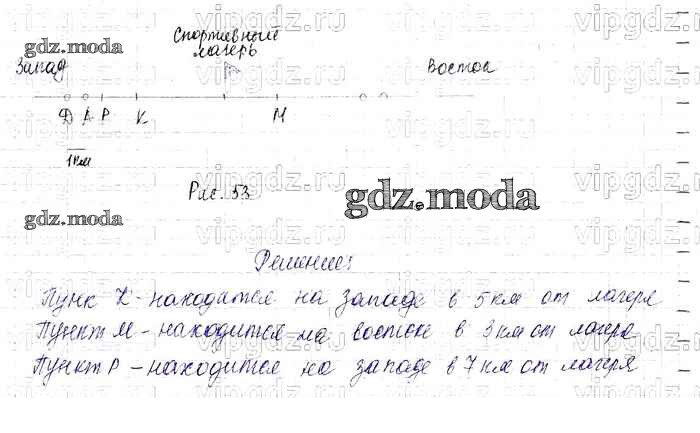 Спортивный
лагерь
Запад
Восток
Д А Р К М
1 км
Рис. 53
Решение:
Пунк К - находится на западе в 5 км от лагеря
Пункт М - находится на восток в 3 км от лагеря
Пункт Р - находится на западе в 7 км от лагеря
gdz.moda
gdz.moda
gdz.moda
vipgdz.ru
vipgdz.ru
vipgdz.ru
vipgdz.ru